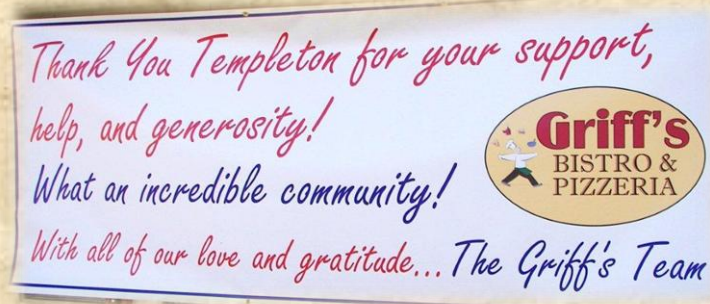 Thank You Templeton for your support,
help, and generosity!
What an incredible community!
With all of our love and gratitude... The Griff's Team
Griff's
BISTRO &
PIZZERIA